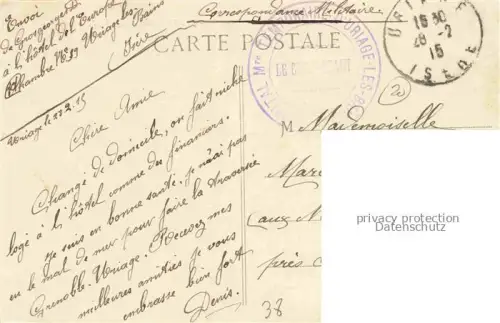 Envoi
de Georges
à l'hôtel de l'Europe
Chambre N° 59 Uriage les Bains
Isère
Correspondance Militaire
CARTE POSTALE
URIAGE-LES-B
URIAGE
15 30
28 -2
15
ISERE
Uriage le 27.2.15
Chère Amie
Changé de domicile, on fait niche
logé à l'hôtel comme des financiers.
Je suis en bonne santé. Je n'ai pas
eu le mal de mer pour faire la traversée
Grenoble-Uriage. Recevez mes
meilleures amitiés je vous
embrasse bien fort
Denis.
M Mademoiselle
Mar
aux
près
privacy protection
Datenschutz
38